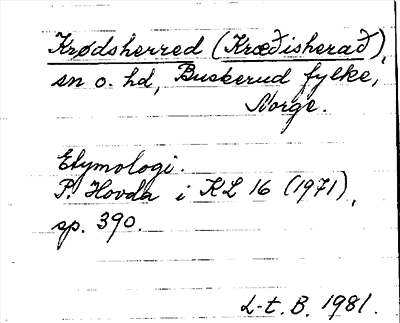 Krødsherred (Kræðisherað),
sn o. hd, Buskerud fylke,
Norge.
Etymologi.
P. Hovda i KL 16 (1971),
sp. 390.
L-t. B. 1981.